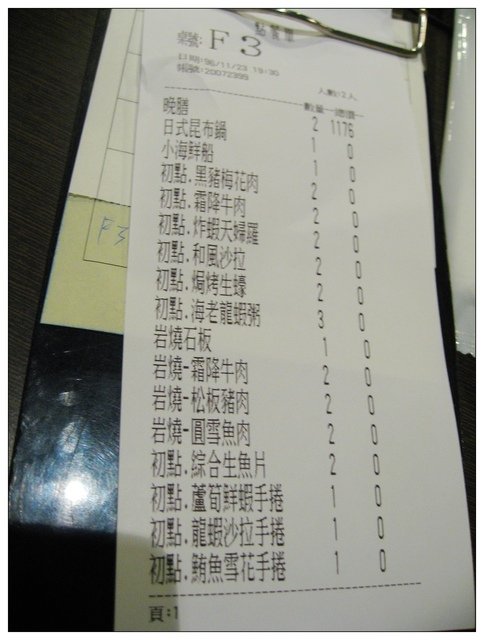 點餐單
桌號: F3
日期:96/11/23 19:30
帳號:20072399
人數:2人
數量 總價
晚膳 2 1176
日式昆布鍋 1 0
小海鮮船 1 0
初點.黑豬梅花肉 2 0
初點.霜降牛肉 2 0
初點.炸蝦天婦羅 2 0
初點.和風沙拉 2 0
初點.焗烤生蠔 2 0
初點.海老龍蝦粥 3 0
岩燒石板 1 0
岩燒-霜降牛肉 2 0
岩燒-松板豬肉 2 0
岩燒-圓雪魚肉 2 0
初點.綜合生魚片 2 0
初點.蘆筍鮮蝦手捲 1 0
初點.龍蝦沙拉手捲 1 0
初點.鮪魚雪花手捲 1 0
頁:1
F3